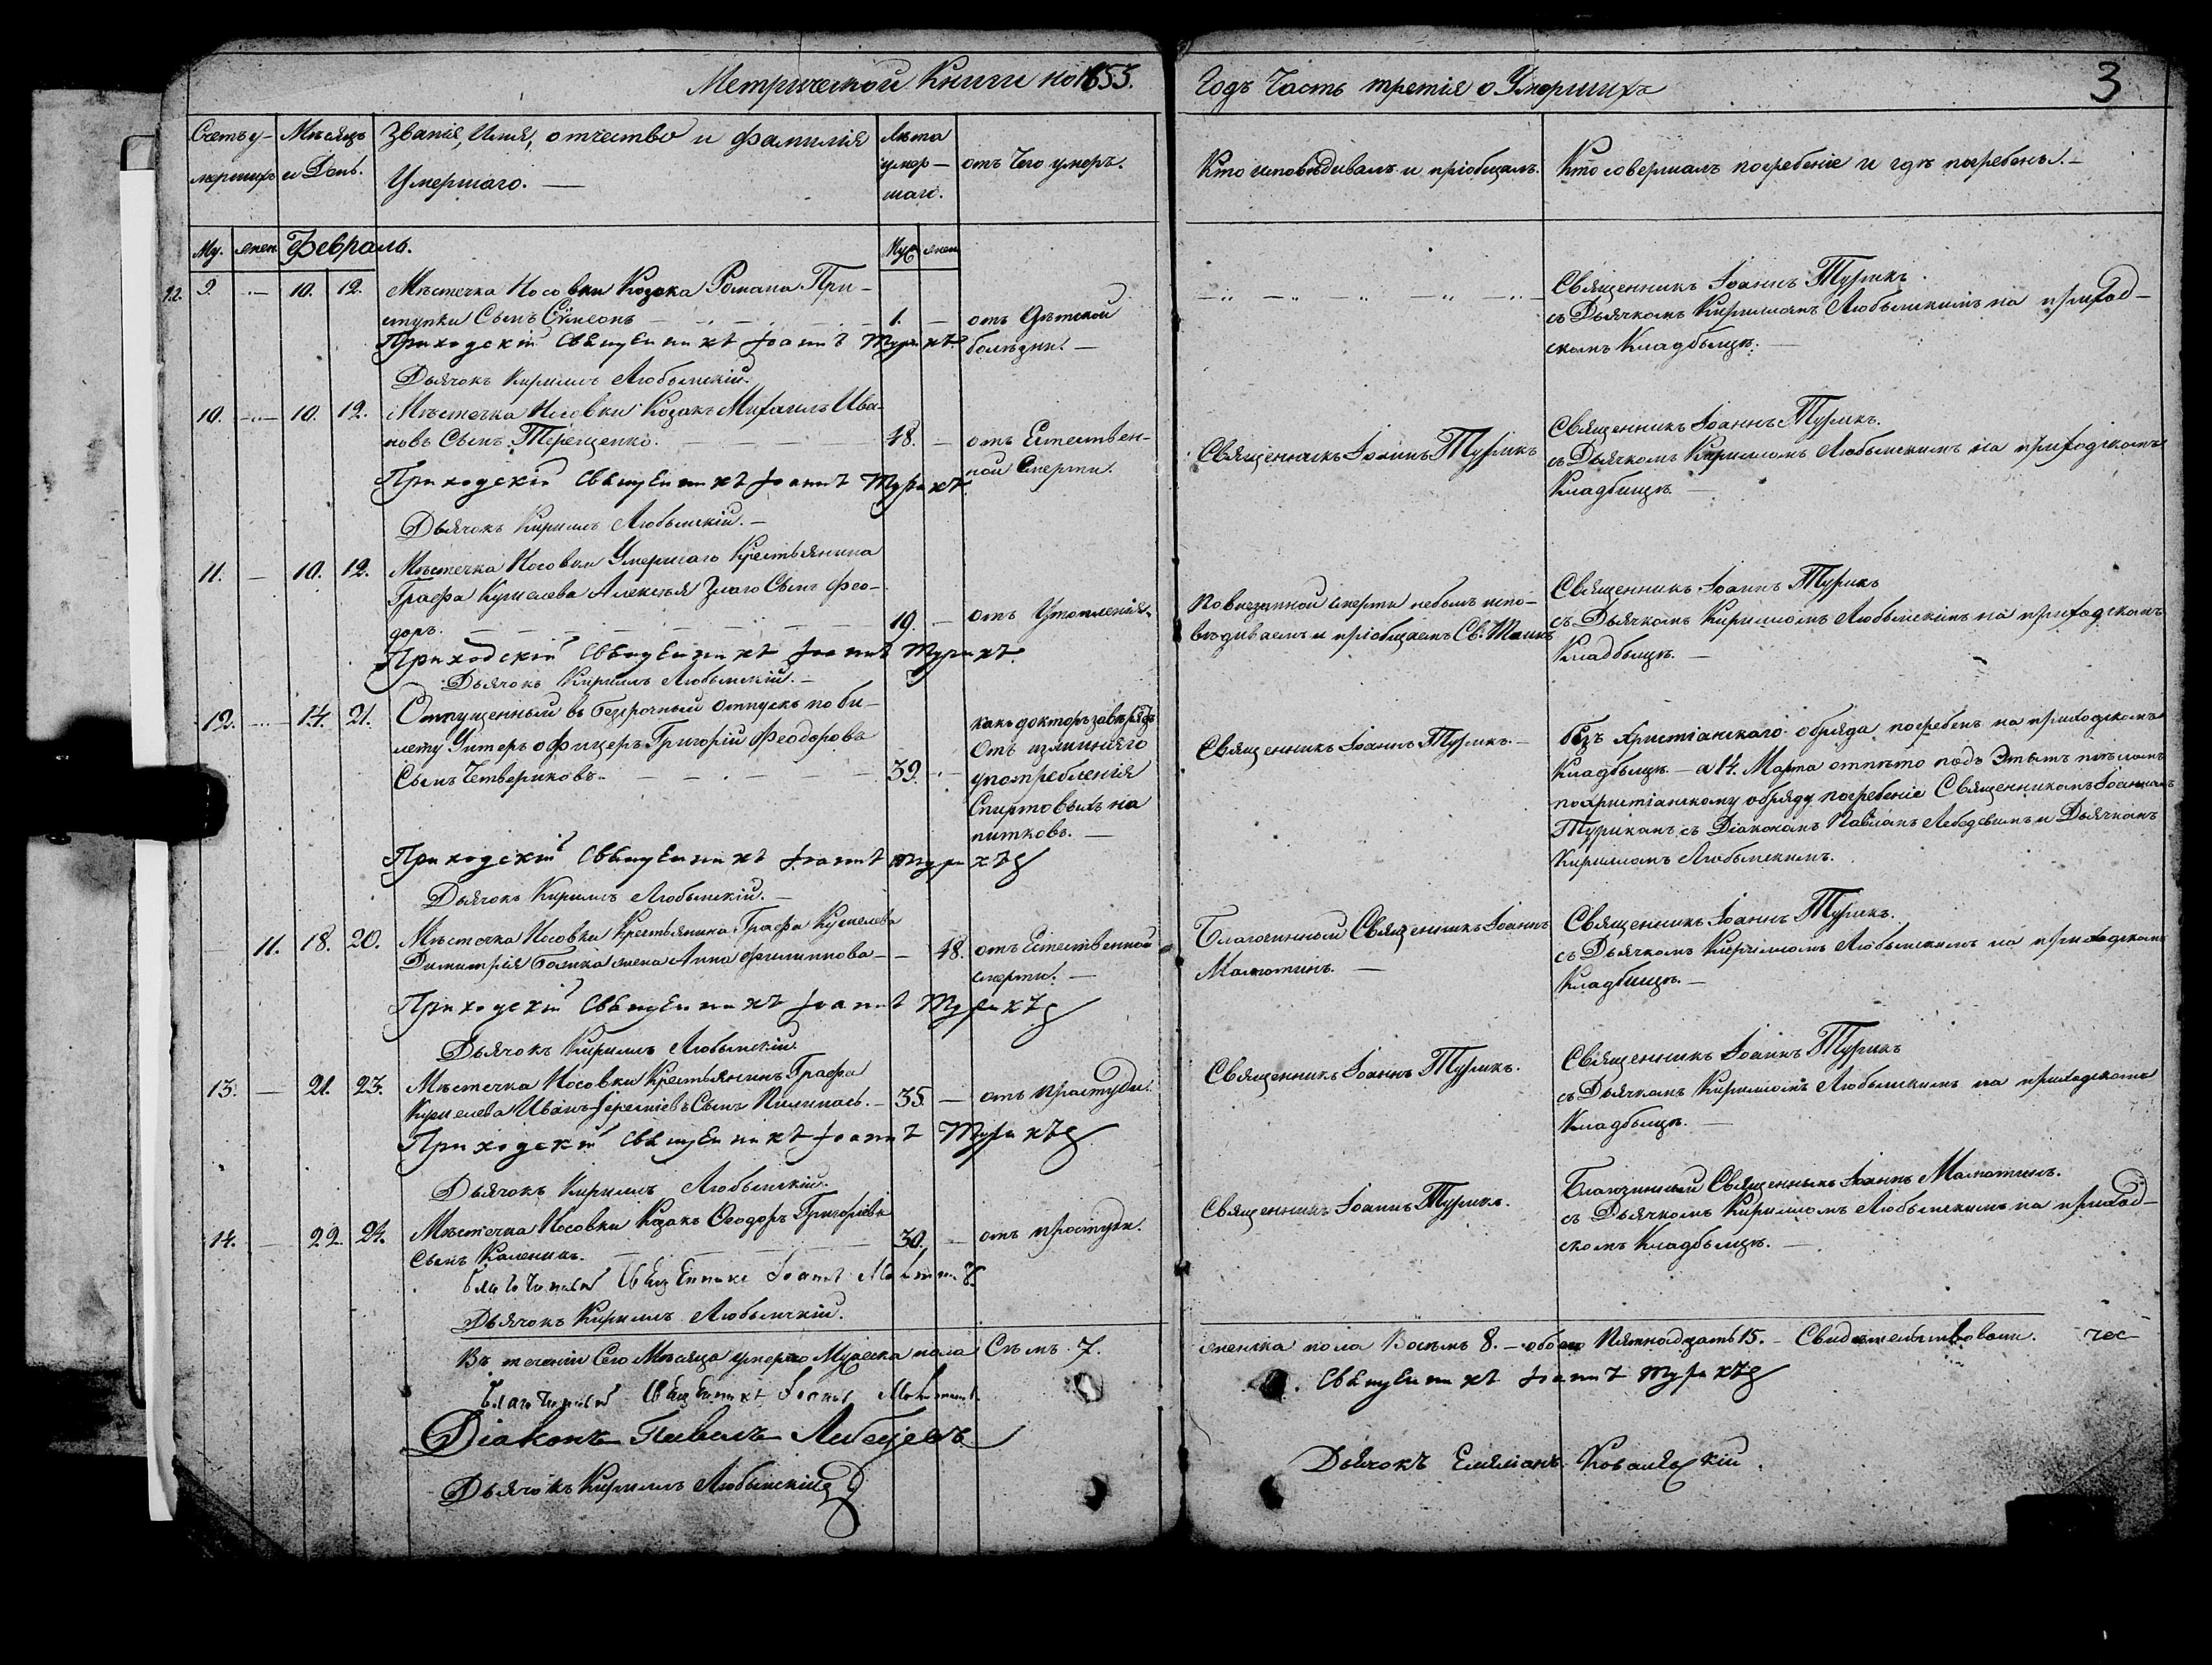 Метрической Книги на 1853.
Счетъ у-
мершихъ
Мѣсяцъ
и День.
Званія, Имя, отчество и фамилія
Умершаго. —
Лѣта
умер-
шаго.
отъ Чего умеръ.
Му. жен. Февраль.
Муж жен
12.
9. — 10. 12. Мѣстечка Носовки Козака Романа При-
ступки Сынъ Сѵмеонъ — 1. — отъ Дѣтской
болѣзни. —
Приходскій Священникъ Іоаннъ Турикъ.
Дьячокъ Кириллъ Любымскій.
10. — 10. 12. Мѣстечка Носовки Козакъ Михаилъ Ива-
новъ Сынъ Терещенко. — 48. — отъ Естествен-
ной Смерти.
Приходскій Священникъ Іоаннъ Турикъ.
Дьячокъ Кириллъ Любымскій. —
11. — 10. 12. Мѣстечка Носовки Умершаго Крестьянина
Графа Кушелева Алексѣя Сынъ Фео-
доръ. — 19. — отъ Утопленія.
Приходскій Священникъ Іоаннъ Турикъ.
Дьячокъ Кириллъ Любымскій. —
12. — 14. 21. Отпущенный въ Безсрочный отпускъ по би-
лету Унтеръ офицеръ Григорій Феодоровъ
Сынъ Четвериковъ. — 39. —
какъ докторъ завѣряетъ
Отъ излишняго
употребленія
Спиртовыхъ на
питковъ. —
Приходскій Священникъ Іоаннъ Турикъ
Дьячокъ Кириллъ Любымскій. —
— 11. 18. 20. Мѣстечка Носовки Крестьянина Графа Кушелева
Димитрія жена Анна Филиппова — — 48. отъ Естественной
смерти. —
Приходскій Священникъ Іоаннъ Турикъ
Дьячокъ Кириллъ Любымскій.
13. — 21. 23. Мѣстечка Носовки Крестьянинъ Графа
Кушелева Иванъ Сынъ — 35. — отъ простуды.
Приходскій Священникъ Іоаннъ Турикъ
Дьячокъ Кириллъ Любымскій.
14. — 22. 24. Мѣстечка Носовки Козакъ Ѳеодоръ Григоріевъ
Сынъ Каленикъ. — 30. — отъ простуды.
Благочинный Священникъ Іоаннъ
Дьячокъ Кириллъ Любымскій.
Въ теченіи Сего Мѣсяца умерло Мужеска пола Сѣмъ 7.
Благочинный Священникъ Іоаннъ
Діаконъ Павелъ Лебедевъ
Дьячокъ Кириллъ Любымскій
Годъ Часть третія о Умершихъ
3
Кто исповѣдывалъ и пріобщалъ.
Кто совершалъ погребеніе и гдѣ погребены. —
Священникъ Іоаннъ Турикъ.
съ Дьячкомъ Кирилломъ Любымскимъ на приход-
скомъ Кладбыщѣ. —
Священникъ Іоаннъ Турикъ
Священникъ Іоаннъ Турикъ.
съ Дьячкомъ Кирилломъ Любымскимъ на приходскомъ
Кладбищѣ. —
По внезапной смерти небылъ испо-
вѣдываемъ и пріобщаемъ Св: Таинъ
Священникъ Іоаннъ Турикъ
съ Дьячкомъ Кирилломъ Любымскимъ на приходскомъ
Кладбыщѣ. —
Священникъ Іоаннъ Турикъ. —
безъ Христіанскаго обряда погребенъ на приходскомъ
Кладбыщѣ. — а 14. Марта отпѣто надъ Этымъ тѣломъ
по христіанскому обряду погребеніе Священникомъ Іоанномъ
Турикомъ съ Діакономъ Павломъ Лебедевымъ и Дьячкомъ
Кирилломъ Любымскимъ.
Благочинный Священникъ Іоаннъ
Священникъ Іоаннъ Турикъ.
съ Дьячкомъ Кирилломъ Любымскимъ на приходскомъ
Кладбищѣ. —
Священникъ Іоаннъ Турикъ.
Священникъ Іоаннъ Турикъ
съ Дьячкомъ Кирилломъ Любымскимъ на приходскомъ
Кладбыщѣ. —
Священникъ Іоаннъ Турикъ.
Благочинный Священникъ Іоаннъ
съ Дьячкомъ Кирилломъ Любымскимъ на приход-
скомъ Кладбыщѣ. —
женска пола Восемъ 8. — обоего Пятнадцать 15. — Свидетельствовали.
Священникъ Іоаннъ Турикъ
Дьячокъ Емиліанъ